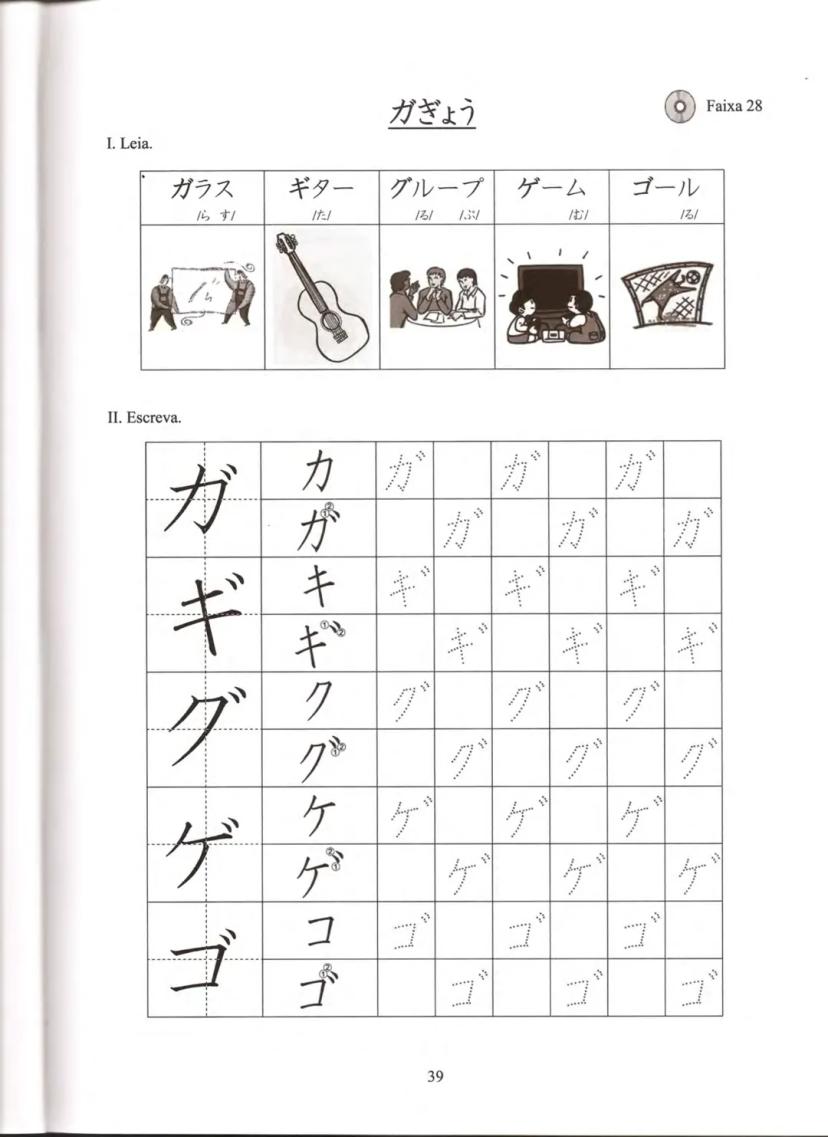 ガぎょう
Faixa 28
I. Leia.
ガラス ギター グループ ゲーム ゴール
/ら す/ /た/ /る/ /ぷ/ /む/ /る/
II. Escreva.
ガ カ ガ ガ ガ
ガ ①② ガ ガ ガ
ギ キ ギ ギ ギ
ギ ①② ギ ギ ギ
グ ク グ グ グ
グ ①② グ グ グ
ゲ ケ ゲ ゲ ゲ
ゲ ①② ゲ ゲ ゲ
ゴ コ ゴ ゴ ゴ
ゴ ①② ゴ ゴ ゴ
39